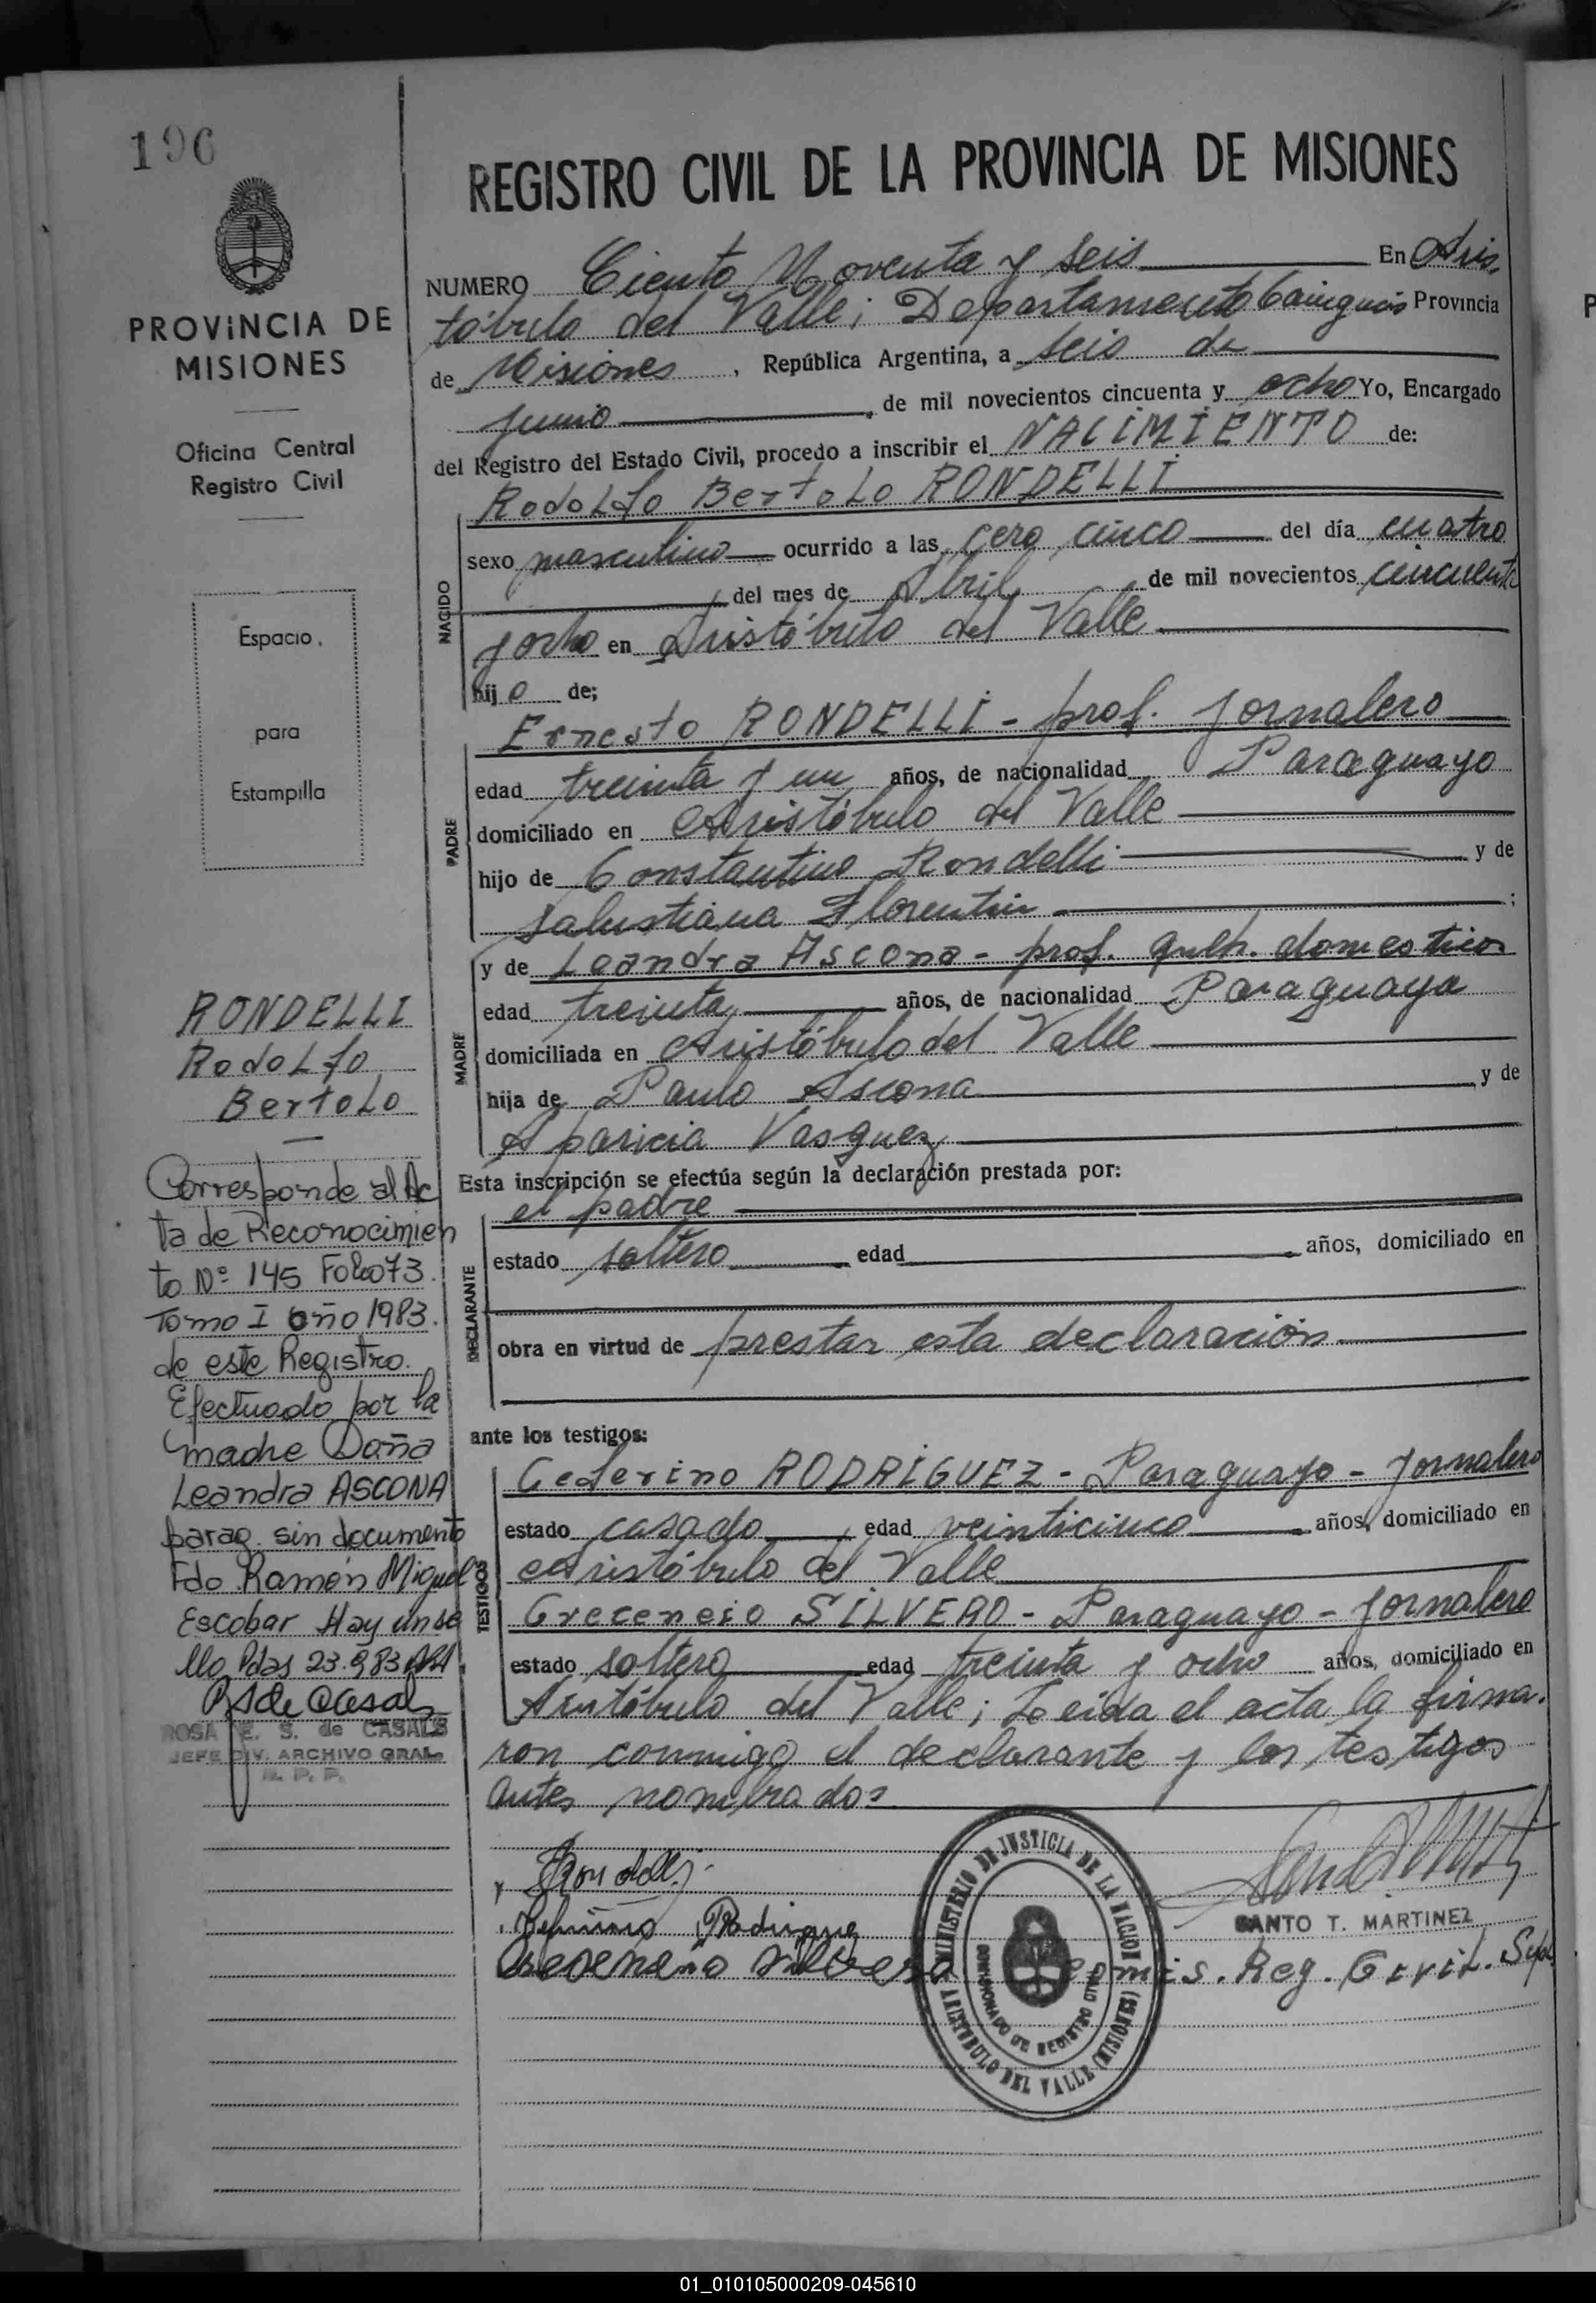 196
PROVINCIA DE
MISIONES
Oficina Central
Registro Civil
Espacio
para
Estampilla
RONDELLI
Rodolfo
Bertolo
Corresponde al Ac
ta de Reconocimien
to Nº 145 Folio 73.
Tomo I año 1983.
de este Registro.
Efectuado por la
madre Doña
Leandra ASCONA
parag. sin documento
Fdo. Ramón Miguel
Escobar Hay un se
llo Pdas 23.9.83
ROSA E. S. de CASALS
JEFE DIV. ARCHIVO GRAL.
R. P. P.
REGISTRO CIVIL DE LA PROVINCIA DE MISIONES
NUMERO Ciento Noventa y seis En Aris
tóbulo del Valle; Departamento Cainguás Provincia
de Misiones, República Argentina, a seis de
junio, de mil novecientos cincuenta y ocho Yo, Encargado
del Registro del Estado Civil, procedo a inscribir el NACIMIENTO de:
Rodolfo Bertolo RONDELLI
NACIDO
sexo masculino ocurrido a las cero cinco del día cuatro
del mes de Abril, de mil novecientos cincuenta
y ocho en Aristóbulo del Valle
hijo de;
PADRE
Ernesto RONDELLI - prof. Jornalero
edad treinta y un años, de nacionalidad Paraguayo
domiciliado en Aristóbulo del Valle
hijo de Constantino Rondelli y de
Salustiana Florentin ;
MADRE
y de Leandra Ascona - prof. queh. domesticos
edad treinta, años, de nacionalidad Paraguaya
domiciliada en Aristóbulo del Valle
hija de Paulo Ascona y de
Aparicia Vasquez
Esta inscripción se efectúa según la declaración prestada por:
DECLARANTE
el padre
estado soltero edad años, domiciliado en
obra en virtud de prestar esta declaración
ante los testigos:
TESTIGOS
Ceferino RODRIGUEZ - Paraguayo - Jornalero
estado casado, edad veinticinco años, domiciliado en
Aristóbulo del Valle
Crecencio SILVERO - Paraguayo - Jornalero
estado soltero edad treinta y ocho años, domiciliado en
Aristóbulo del Valle; Leida el acta la firma.
ron conmigo el declarante y los testigos
antes nombrados
SANTO T. MARTINEZ
Comis. Reg. Civil. Supl
MINISTERIO DE JUSTICIA DE LA NACION
COMISIONADO DE REGISTRO CIVIL
ARISTOBULO DEL VALLE (MISIONES)
01_010105000209-045610